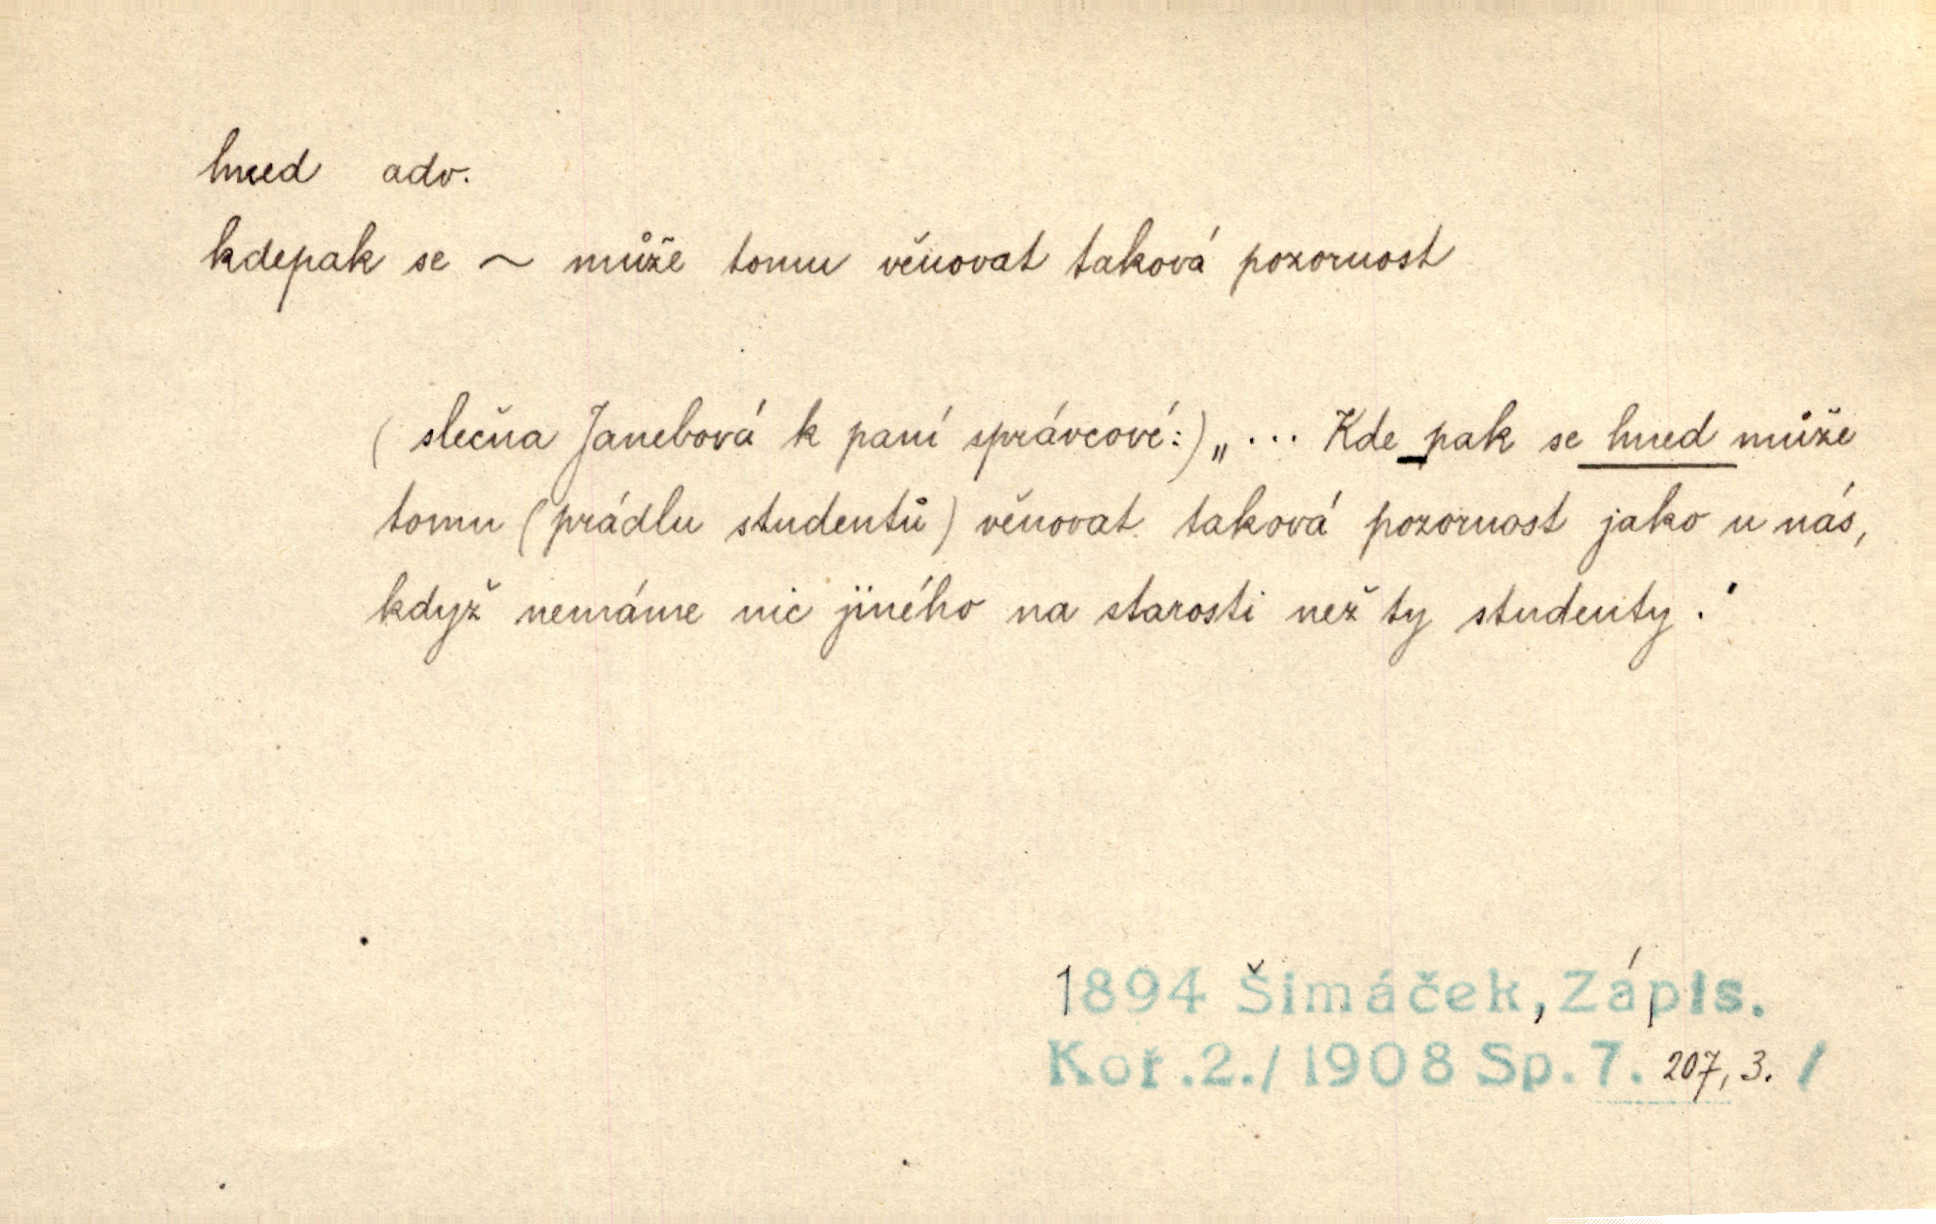 hned adv.
kdepak se ~ může tomu věnovat taková pozornost
( slečna Janebová k paní správcové:) „ ... Kde pak se hned může
tomu ( prádlu studentů ) věnovat taková pozornost jako u nás,
když nemáme nic jiného na starosti než ty studenty."
1894 Šimáček, Zápis.
Koř.2./1908 Sp.7. 207, 3. /